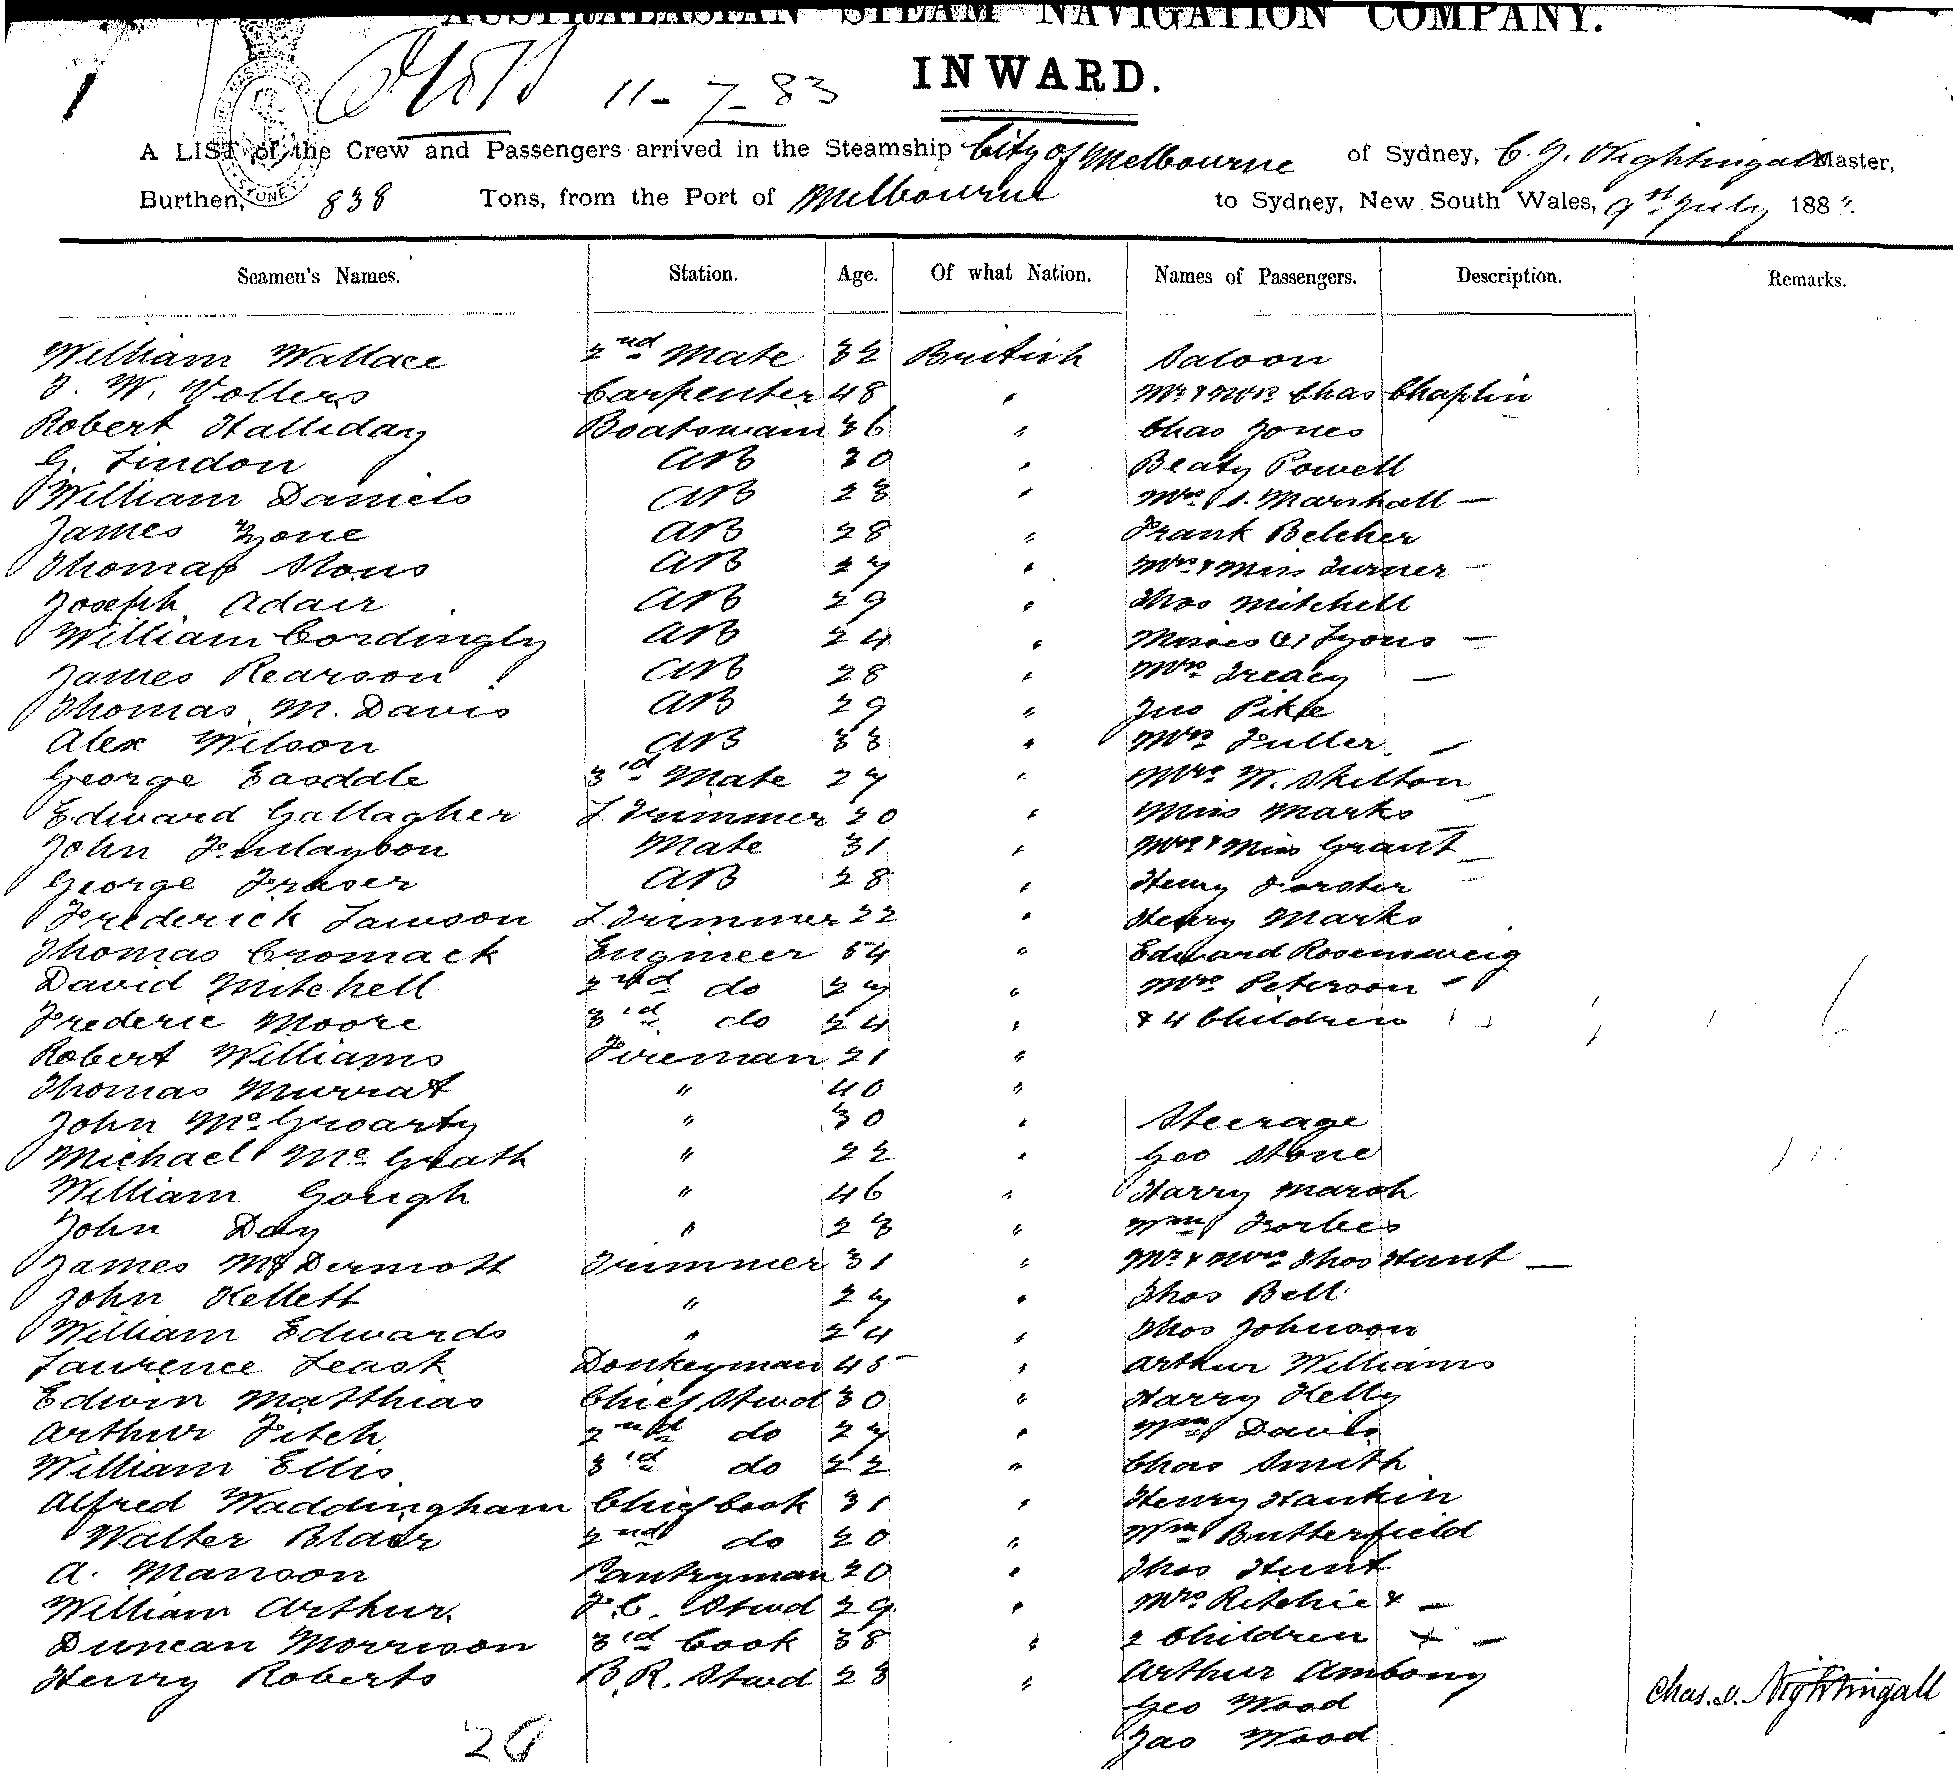 AUSTRALASIAN STEAM NAVIGATION COMPANY.
11-7-83
INWARD.
A LIST of the Crew and Passengers arrived in the Steamship City of Melbourne of Sydney, C. J. Nightingall Master,
Burthen, 838 Tons, from the Port of Melbourne to Sydney, New South Wales, 9th July 188
Seamen's Names. Station. Age. Of what Nation. Names of Passengers. Description. Remarks.
William Wallace 2nd Mate 32 British Saloon
J. W. Vollers Carpenter 48 " Mr & Mrs Chas Chaplin
Robert Halliday Boatswain 36 " Chas Jones
G. Lindon AB 30 " Beaty Powell
William Daniels AB 23 " Mrs S. Marshall —
James AB 28 " Frank Belcher
Thomas Stous AB 27 " Mrs & Miss Turner —
Joseph Adair AB 29 " Thos Mitchell
William Cordingly AB 24 " Misses Lyons —
James Rearson AB 28 " Mrs Treacy —
Thomas M. Davis AB 29 " Jno Pikle
Alex Wilson AB 33 " Mrs Fuller —
George Easddle 3rd Mate 27 " Mrs W. Skilton —
Edward Gallagher L Trimmer 20 " Miss Marks —
John Finlayson Mate 31 " Mrs & Miss Grant —
George Fraser AB 28 " Henry Forster —
Frederick Lawson L Trimmer 22 " Henry Marks
Thomas Cromack Engineer 54 " Edward Rosensweig
David Mitchell 2nd do 27 " Mrs Peterson
Frederic Moore 3rd do 24 " & 4 Children
Robert Williams Fireman 21 "
Thomas Murrat " 40 "
John McGroarty " 30 " Steerage
Michael McGrath " 22 " Geo Stone
William Gough " 46 " Harry Marsh
John Day " 23 " Wm Forbes
James McDermott Trimmer 31 " Mr & Mrs Thos Hunt —
John Kellett " 27 " Thos Bell
William Edwards " 24 " Thos Johnson
Laurence Leask Donkeyman 45 " Arthur Williams
Edwin Matthias Chief Stwd 30 " Harry Kelly
Arthur Fitch 2nd do 27 " Wm Davis
William Ellis 3rd do 22 " Chas Smith
Alfred Waddingham Chief Cook 31 " Henry Hankin
Walter Blair 2nd do 20 " Wm Butterfield
A. Manson Pantryman 20 " Thos Hunt
William Arthur F.C. Stwd 29 " Mrs Ritchie & —
Duncan Morrison 3rd Cook 38 " 2 Children —
Henry Roberts B.R. Stwd 23 " Arthur Ambony
Chas. J. Nightingall
Geo Wood
Jas Wood